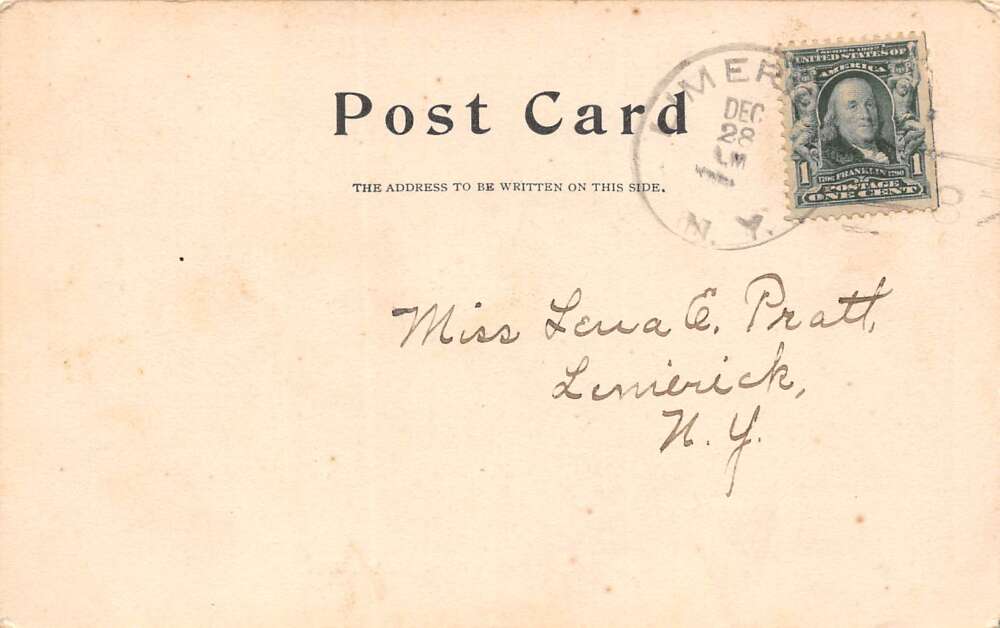 Post Card
THE ADDRESS TO BE WRITTEN ON THIS SIDE.
DEC
28
N. Y.
SERIES 1902
UNITED STATES OF
AMERICA
1
1706 FRANKLIN 1790
POSTAGE
ONE CENT
Miss Lena E. Pratt,
Limerick,
N. Y.